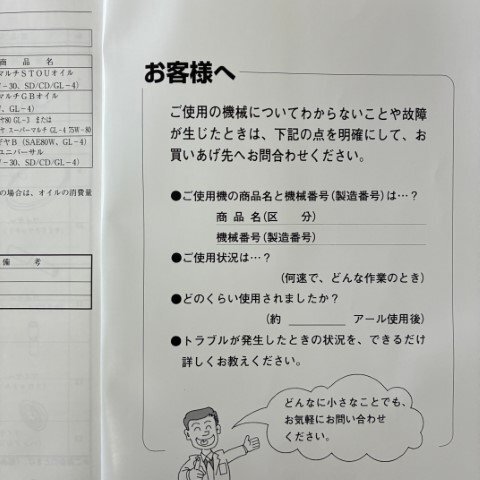 商 品 名
マルチＳＴＯＵオイル
－30、SD/CD/GL－4)
マルチＧＢオイル
、GL－4)
80 GL－3 または
スーパーマルチ GL－4 75W－80
ギヤＢ（SAE80W、GL－4)
ユニバーサル
－30、SD/CD/GL－4)
の場合は、オイルの消費量
備 考
お客様へ
ご使用の機械についてわからないことや故障
が生じたときは、下記の点を明確にして、お
買いあげ先へお問合わせください。
●ご使用機の商品名と機械番号(製造番号)は…？
商 品 名(区 分)
機械番号(製造番号)
●ご使用状況は…？
(何速で、どんな作業のとき)
●どのくらい使用されましたか？
(約 ＿＿＿＿ アール使用後)
●トラブルが発生したときの状況を、できるだけ
詳しくお教えください。
どんなに小さなことでも、
お気軽にお問い合わせ
ください。